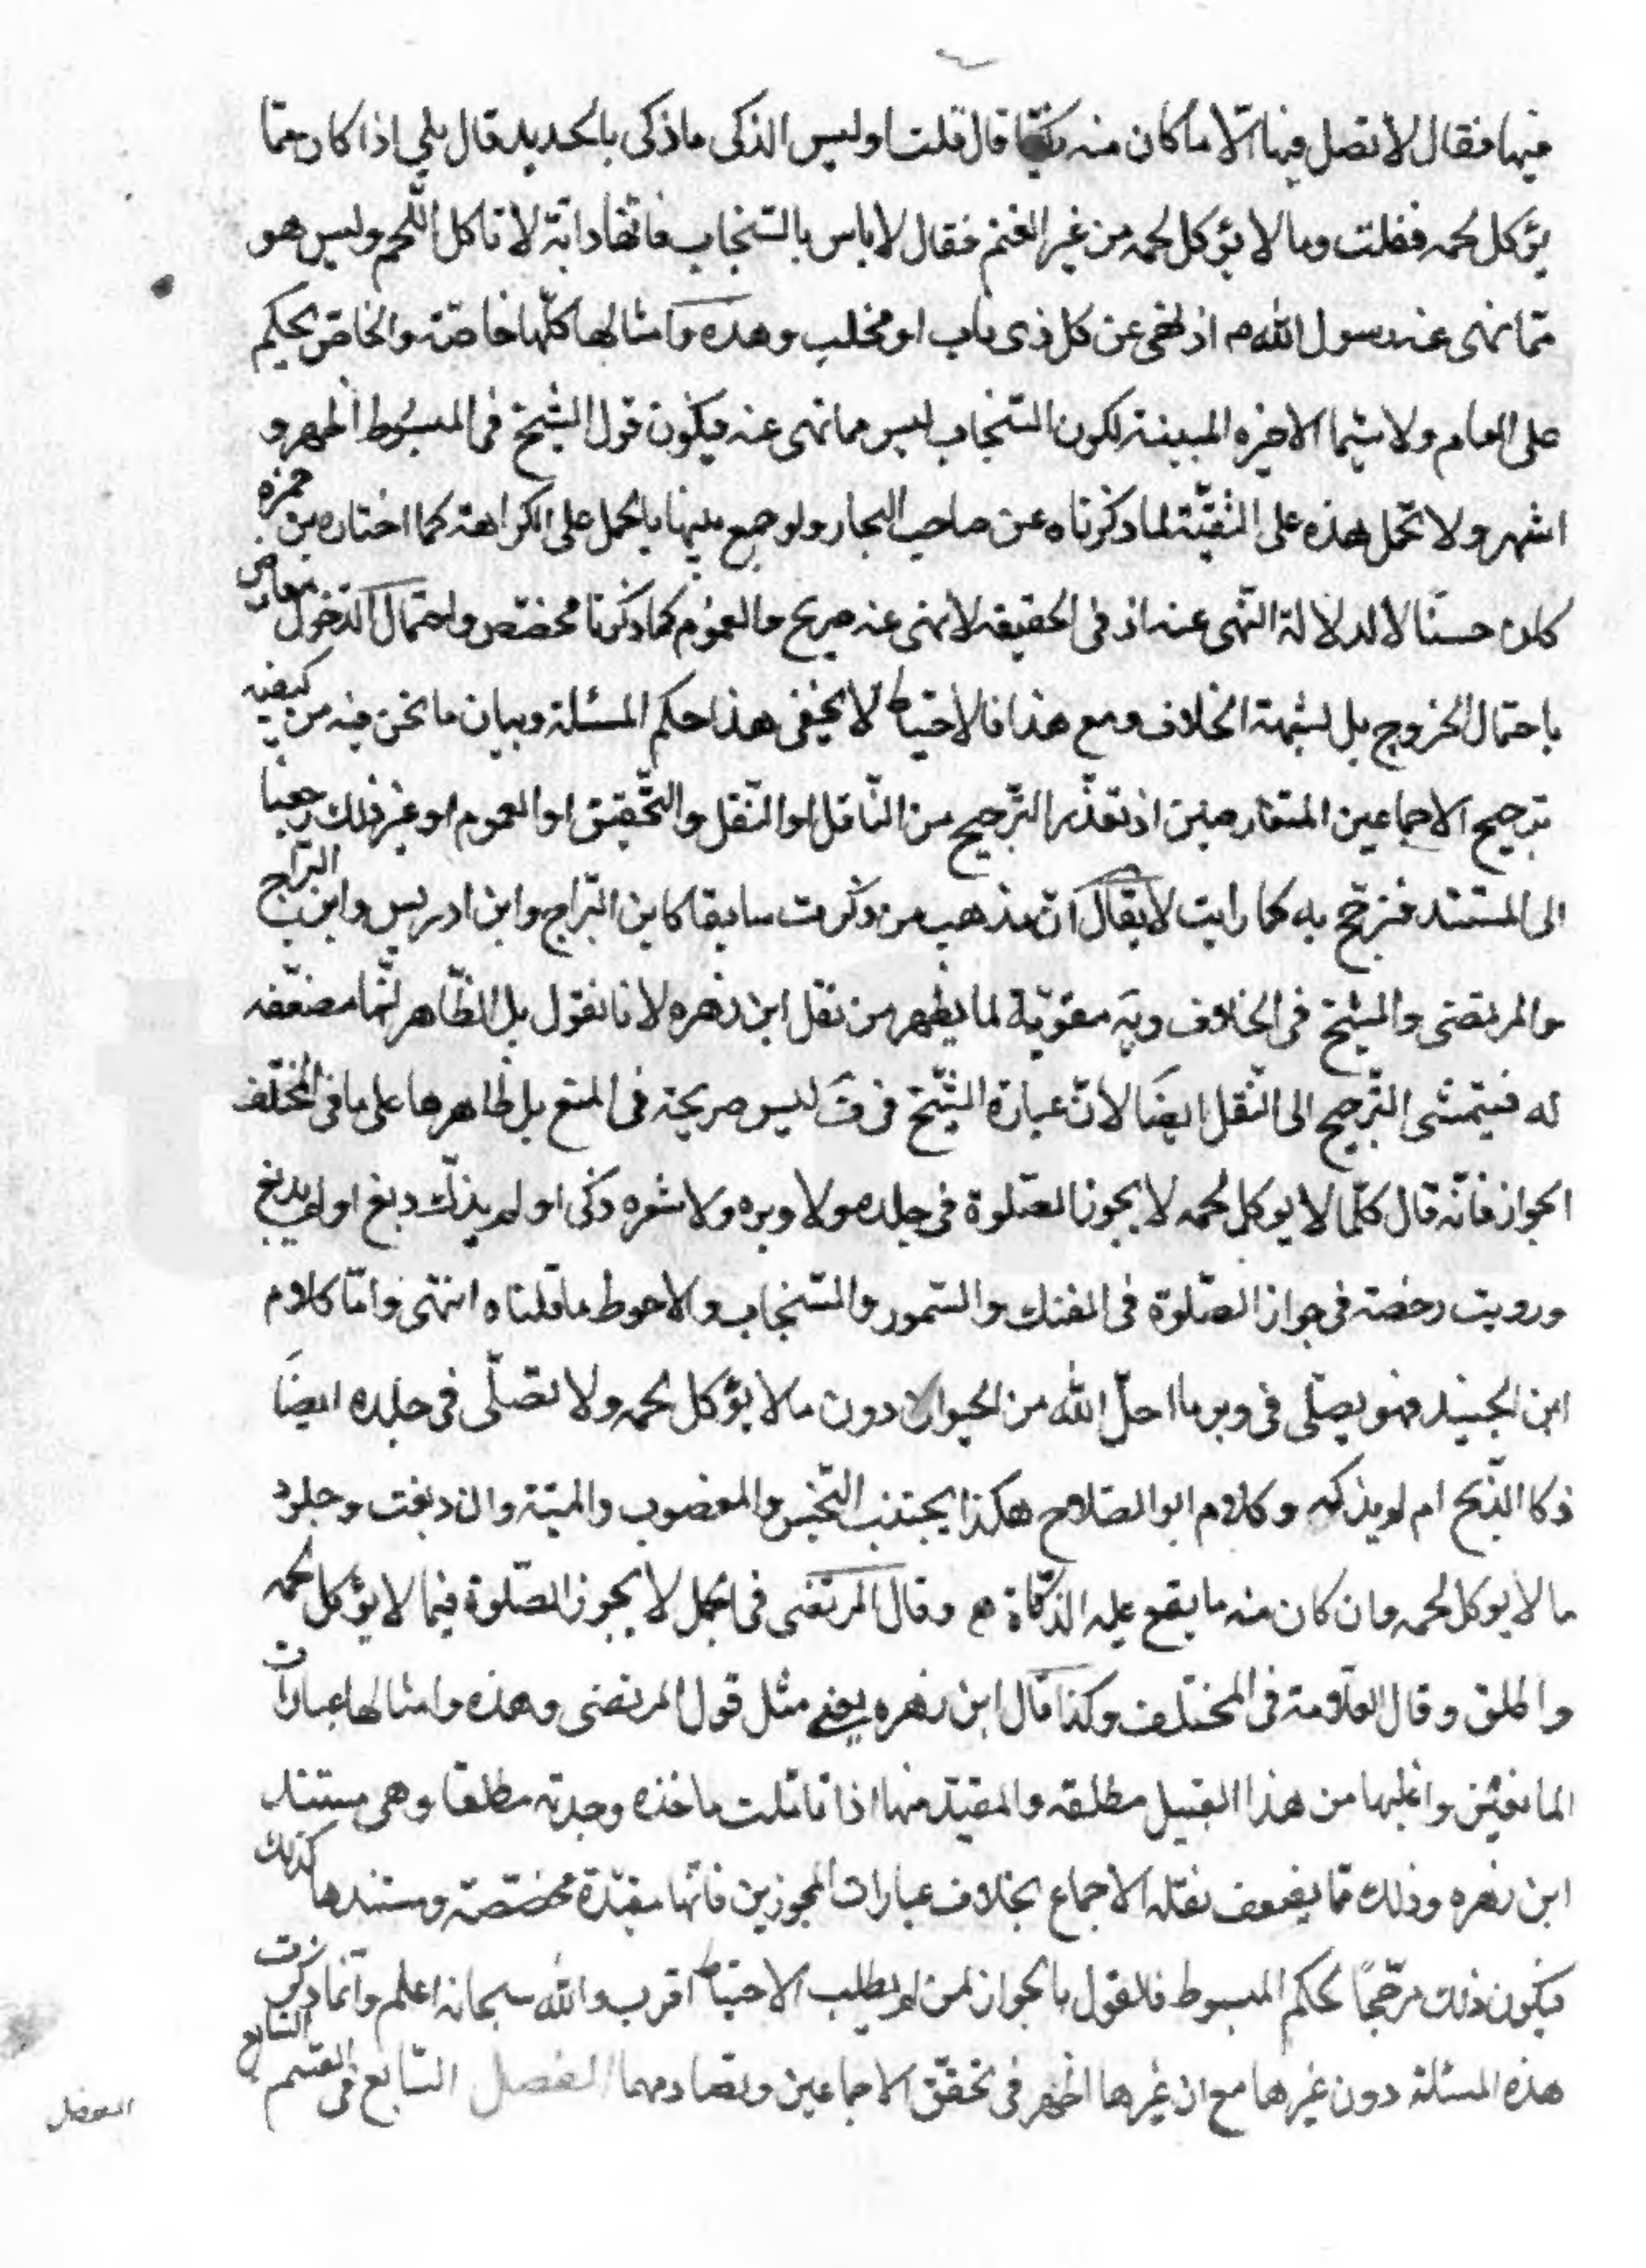 فيها فقال لا تصل فيها الا ما كان منه ذكيّا قال قلت اوليس الذكى ما ذكى بالحديد قال بلى اذا كان ممّا
يؤكل لحمه فقلت وما لا يؤكل لحمه من غير الغنم فقال لا باس بالسّنجاب فانّها دابّة لا تاكل اللّحم وليس هو
ممّا نهى عنه رسول الله ص اذ نهى عن كل ذى ناب او مخلب وهذه وامثالها كلّها خاصّة والخاصّ يحكم
على العام ولا سيّما الاخيره المبينة لكون السّنجاب ليس مما نهى عنه فيكون قول الشّيخ فى المبسوط اظهر و
اشهر ولا تحمل هذه على التّقيّة لما ذكرناه عن صاحب البحار ولو جمع بينها بالحمل على الكراهة كما اختاره بن حمزه
كان حسنًا لا لدلالة النّهى عنه اذ فى الحقيقه لا نهى عنه صريح والعموم كما ذكرنا مخصّص واحتمال الدّخول معارض
باحتمال الخروج بل لشبهة الخلاف ومع هذا فالاحتياط لا يخفى هذا حكم المسئلة وبيان ما نحن فيه من كيفيه
ترجيح الاجماعين المتعارضين اذ تعذّر التّرجيح من النّاقل او النّقل والتّحقيق او العموم او غير ذلك رجعنا
الى المستند فنرجّح به كما رايت لا يقال انّ مذهب من ذكرت سابقا كابن البرّاج وابن ادريس وابن البرّاج
والمرتضى والشّيخ فى الخلاف ويه مقوّية لما يظهر من نقل ابن زهره لانا نقول بل الظّاهر انّها مضعّفه
له فيتمشى التّرجيح الى النّقل ايضًا لانّ عبارة الشّيخ فى ف ليس صريحة فى المنع بل ظاهرها على ما فى المختلف
الجواز فانّه قال كلّما لا يوكل لحمه لا يجوز الصّلوة فى جلده ولا وبره ولا شعره ذكى او لم يذكّ دبغ او لم يدبغ
ورويت رخصة فى جواز الصّلوة فى الفنك والسّمور والسّنجاب والاحوط ما قلناه انتهى وامّا كلام
ابن الجنيد فهو يصلّى فى وبر ما احلّ الله من الحيوان دون ما لا يؤكل لحمه ولا تصلّى فى جلده ايضًا
ذكا الذّبح ام لم يذكه وكلام ابو الصّلاح هكذا يجتنب النّجس والمغصوب والميتة وان دبغت وجلود
ما لا يوكل لحمه وان كان منه ما يقع عليه الذّكاة وقال المرتضى فى الجمل لا يجوز الصّلوة فيما لا يؤكل لحمه
واطلق وقال العلّامة فى المختلف وكذا قال ابن زهره يعنى مثل قول المرتضى وهذه وامثالها عبارات
المانعين واغلبها من هذا القبيل مطلقه والمقيّد منها اذا تاملت ماخذه وجدته مطلقا وهى مستند
ابن زهره وذلك ممّا يضعف نقله الاجماع بخلاف عبارات المجوزين فانّها مقيّدة مخصّصة ومستندها كذلك
فيكون ذلك مرجّحًا لحكم المبسوط فالقول بالجواز لمن لم يطلب الاحتياط اقرب والله سبحانه اعلم وانّما ذكرت
هذه المسئلة دون غيرها مع ان غيرها اظهر فى تحقّق الاجماعين وتصادمهما الفصل السّابع فى القسم السّابع
الفصل